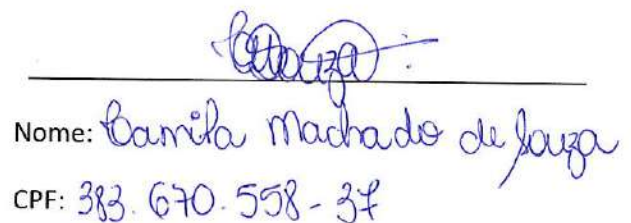 Nome: Camila Machado de Souza
CPF: 383.670.558-37